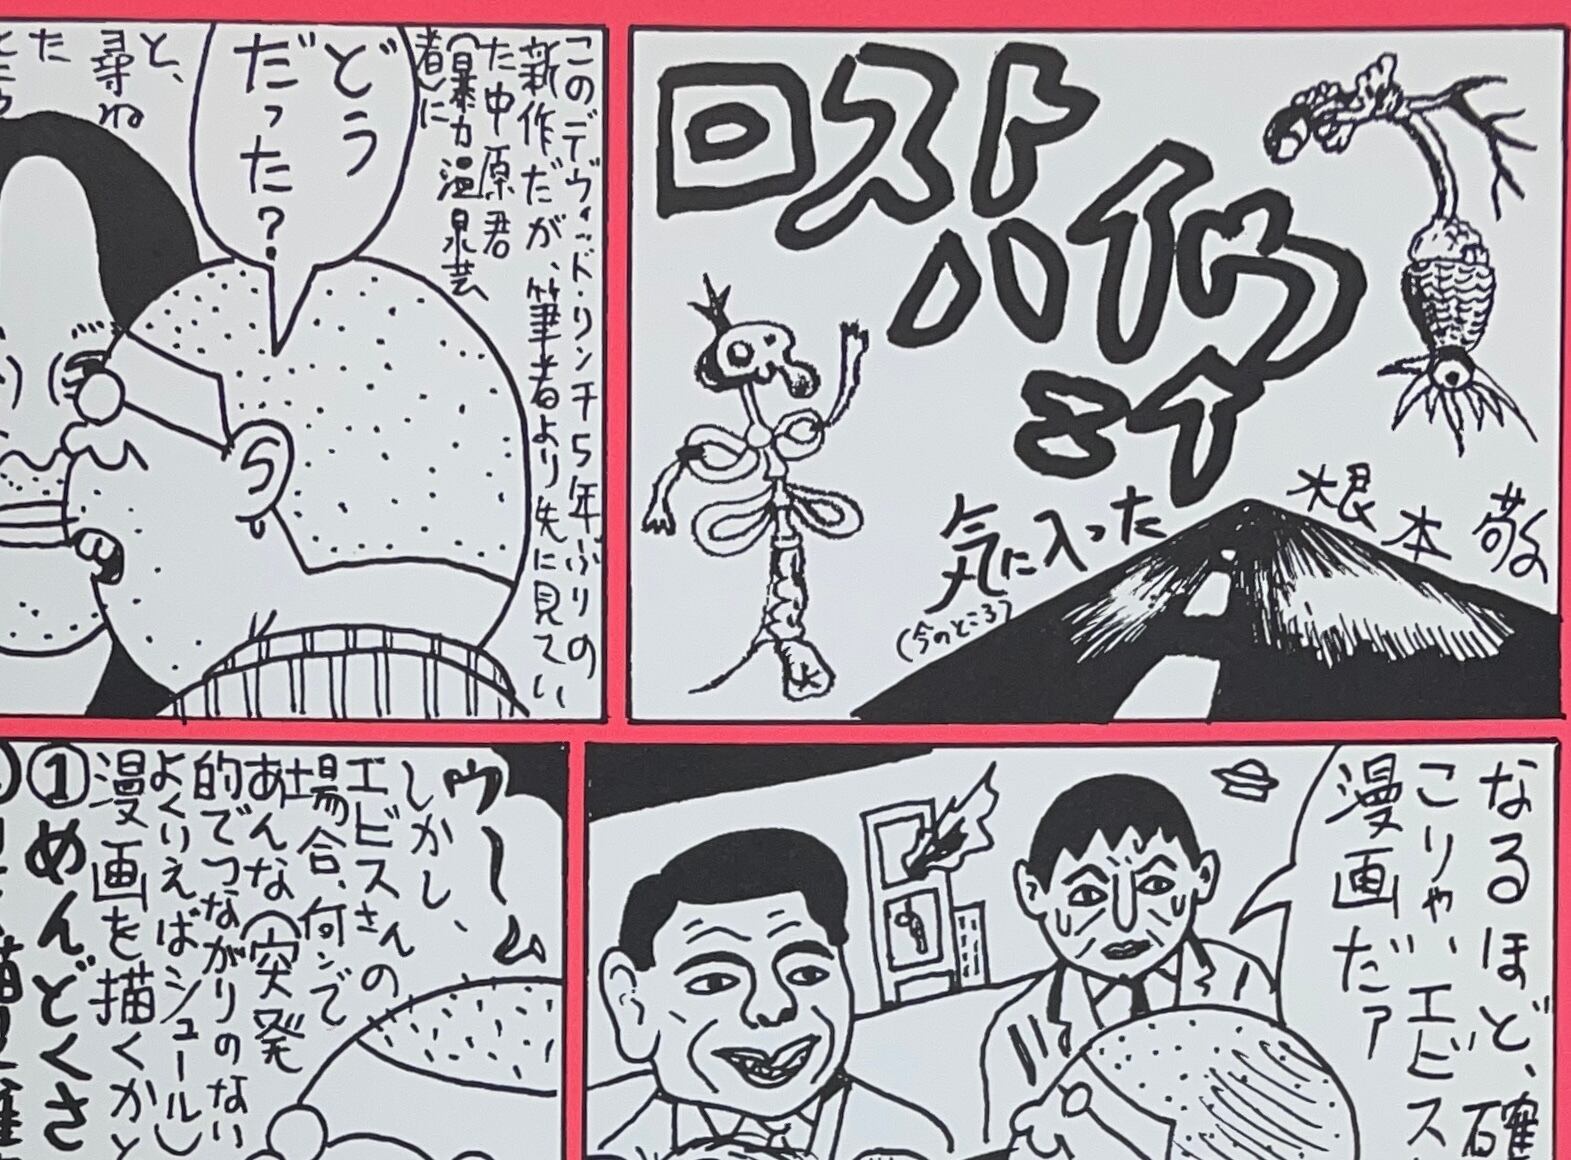 ロスト
ハイウ
エイ
気に入った
(今のところ)
根本敬
このデヴィッド・リンチ5年ぶりの
新作だが、筆者より先に見てい
た中原君
(暴力温泉芸
者)に
どう
だった?
と、
尋ね
た
なるほど、確
こりゃ、エビス
漫画だァ
ウーム
しかし、
エビスさんの
場合、何ンで
あんな(突発
的でつながりのない
よくいえばシュール)
漫画を描くかと
①めんどくさ